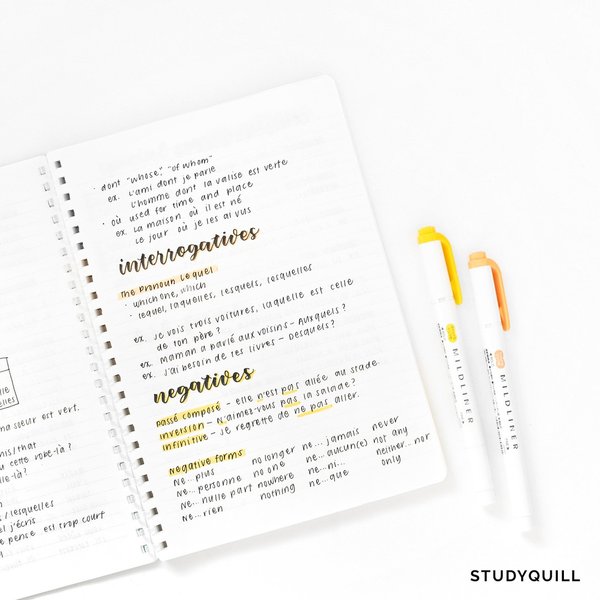 elle
elles
ma sœur est vert.
is/that
u cette robe-là?
là?
s/lesquelles
el j'écris
e pense est trop court
· dont "whose," "of whom"
ex. L'ami dont je parle
L'homme dont la valise est verte
· où used for time and place
ex. La maison où il est né
Le jour où je les ai vus
interrogatives
The pronoun Lequel
· which one, which
· lequel, laquelles, lesquels, lesquelles
ex. Je vois trois voitures, laquelle est celle
de ton père?
ex. Maman a parlé aux voisins - Auxquels?
ex. J'ai besoin de tes livres - Desquels?
negatives
passé composé - elle n'est pas allée au stade.
inversion - N'aimez-vous pas la salade?
infinitive - Je regrette de ne pas aller.
negative forms
ne...plus no longer ne...jamais never
ne...personne no one ne...aucun(e) not any
ne...nulle part nowhere ne...ni... neither...nor
ne...rien nothing ne...que only
MILDLINER
MILDLINER
STUDYQUILL